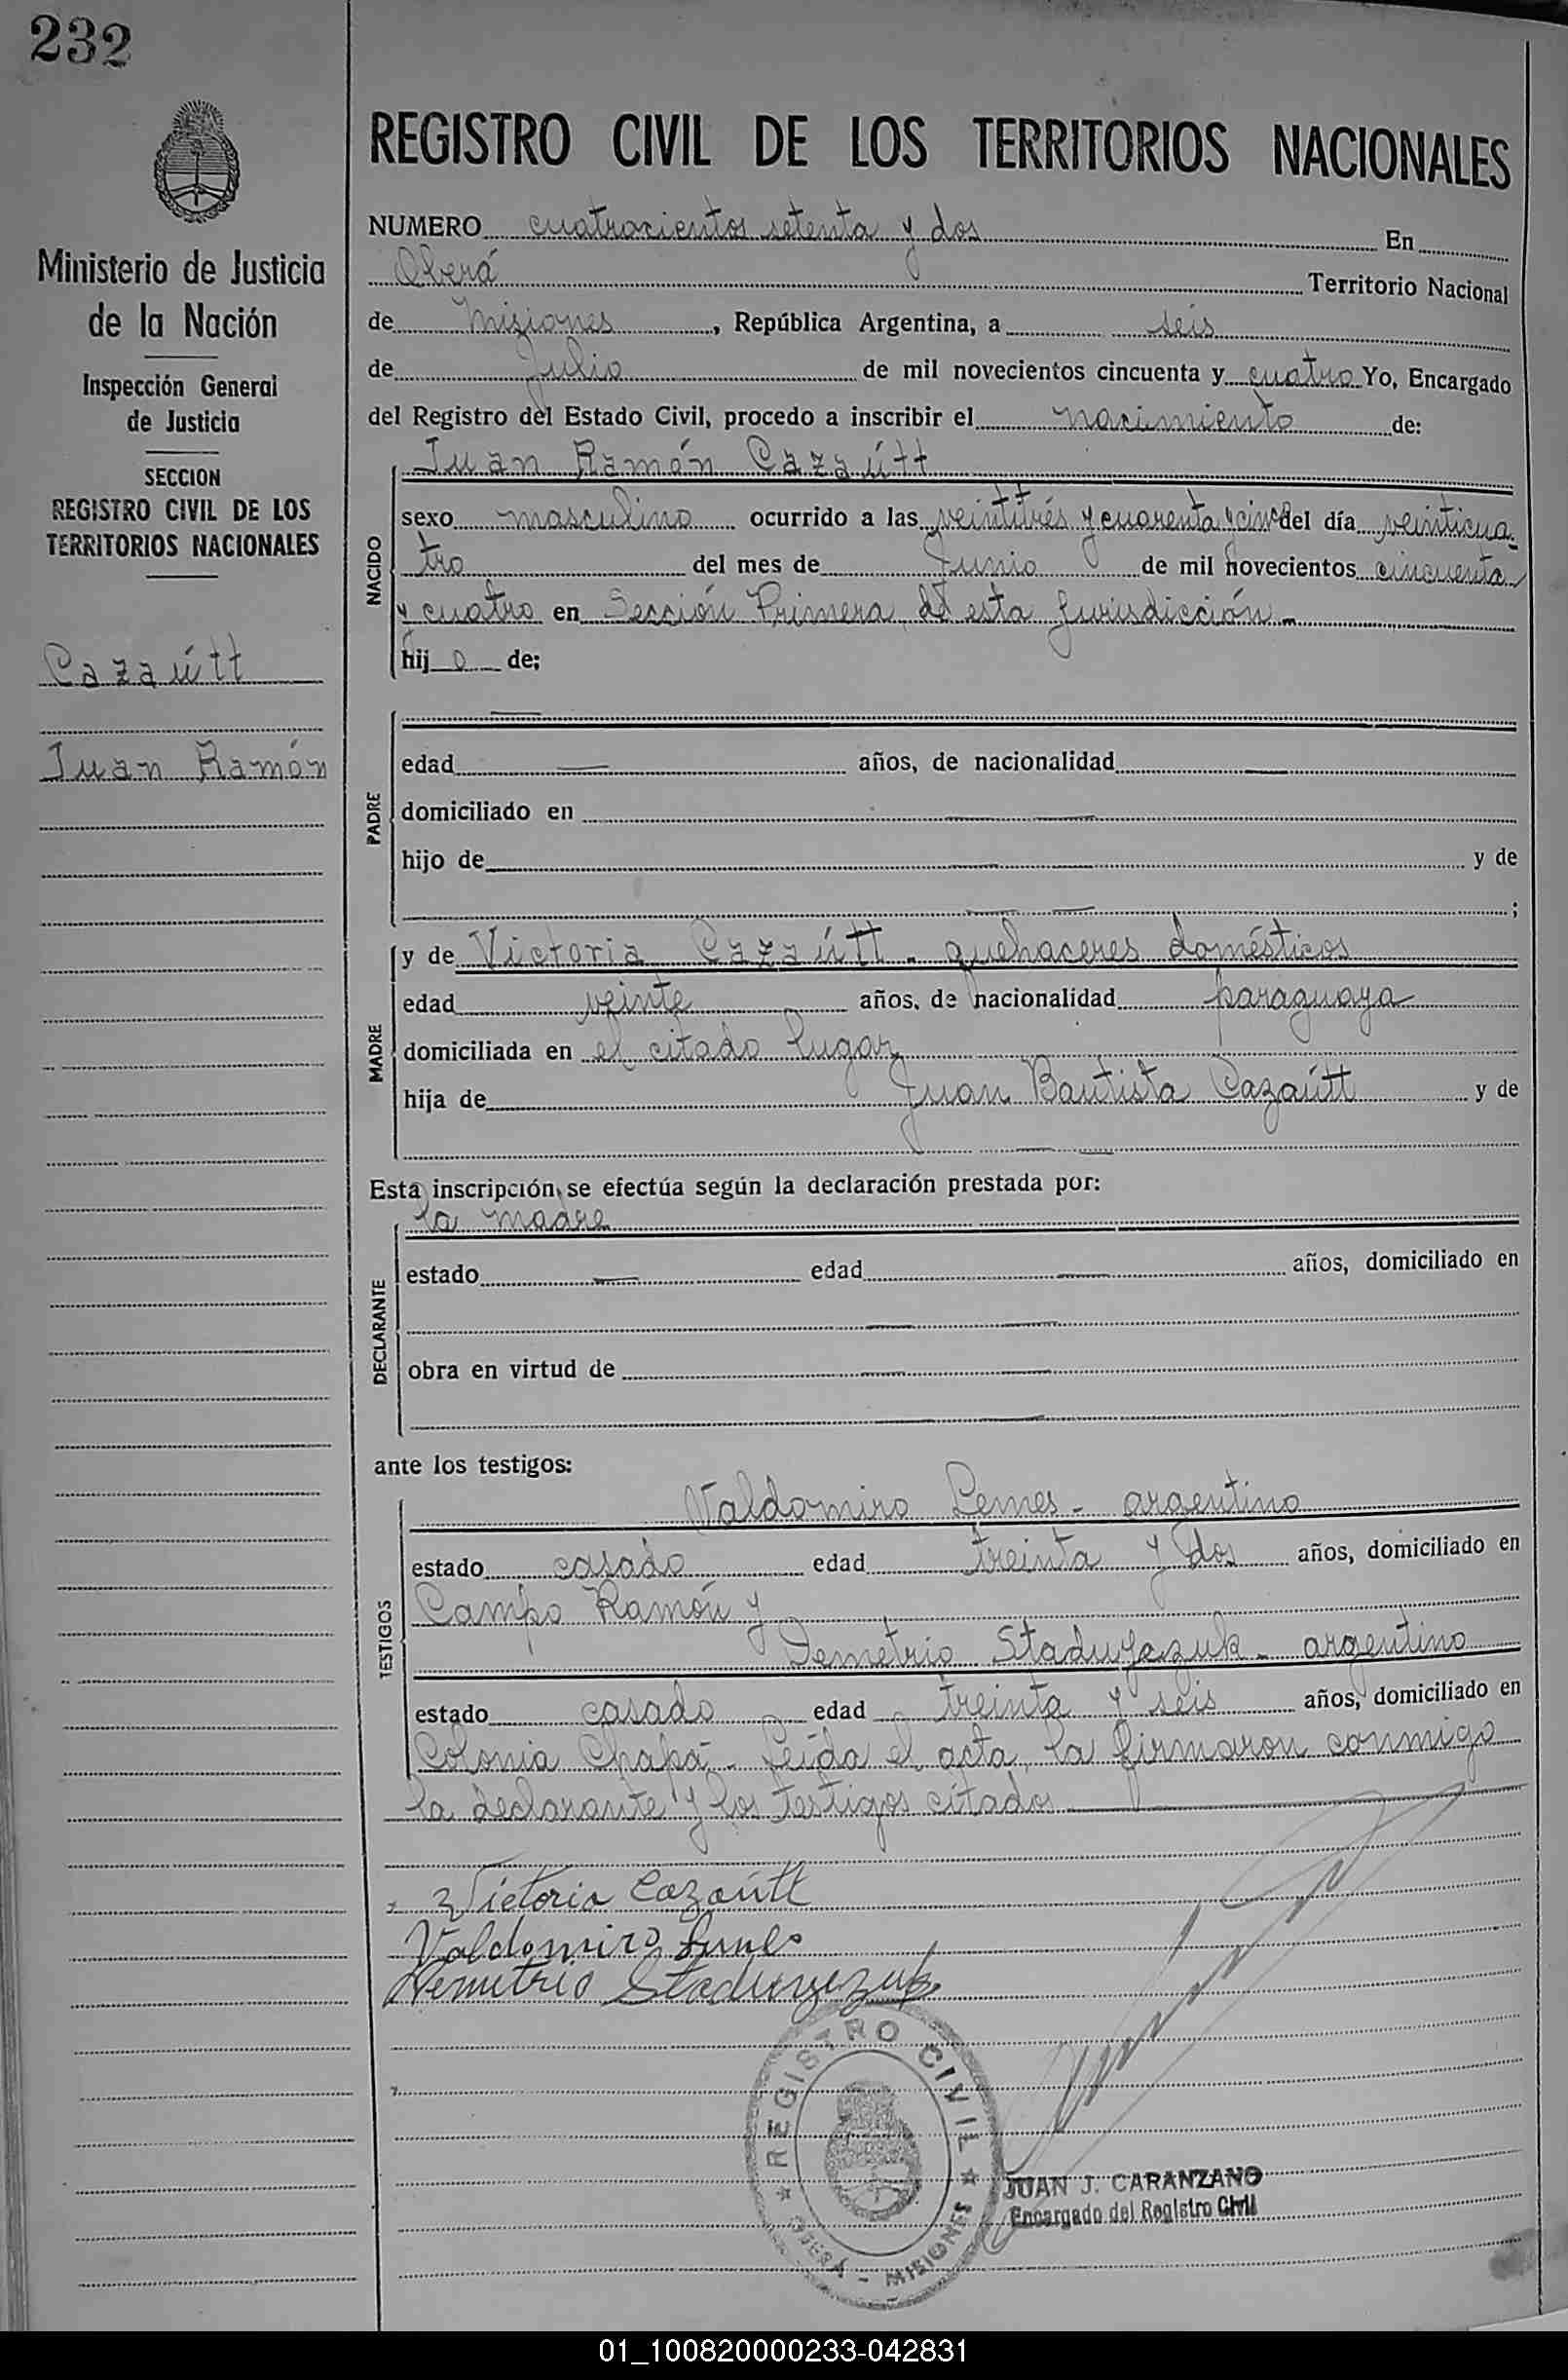 232
Ministerio de Justicia
de la Nación
Inspección General
de Justicia
SECCION
REGISTRO CIVIL DE LOS
TERRITORIOS NACIONALES
Cazaútt
Juan Ramón
REGISTRO CIVIL DE LOS TERRITORIOS NACIONALES
NUMERO cuatrocientos setenta y dos En
Oberá Territorio Nacional
de Misiones, República Argentina, a seis
de Julio de mil novecientos cincuenta y cuatro Yo, Encargado
del Registro del Estado Civil, procedo a inscribir el nacimiento de:
Juan Ramón Cazaútt
NACIDO
sexo masculino ocurrido a las veintitrés y cuarenta y cinco del día veinticua-
tro del mes de Junio de mil novecientos cincuenta
y cuatro en Sección Primera de esta Jurisdicción.-
hijo de;
PADRE
edad — años, de nacionalidad —
domiciliado en — —
hijo de — y de
— — ;
MADRE
y de Victoria Cazaútt - quehaceres domésticos
edad veinte años, de nacionalidad paraguaya
domiciliada en el citado lugar
hija de Juan Bautista Cazaútt y de
— —
Esta inscripción se efectúa según la declaración prestada por:
la madre
DECLARANTE
estado — edad — años, domiciliado en
— —
obra en virtud de — —
— —
ante los testigos:
TESTIGOS
Valdomiro Lemes - argentino
estado casado edad treinta y dos años, domiciliado en
Campo Ramón y
Demetrio Staduyezuk - argentino
estado casado edad treinta y seis años, domiciliado en
Colonia Chapá - Leída el acta, la firmaron conmigo
la declarante y los testigos citados
Victoria Cazaútt
Valdomiro Lemes
Demetrio Staduyezuk
REGISTRO CIVIL
OBERA - MISIONES
JUAN J. CARANZANO
Encargado del Registro Civil
01_100820000233-042831